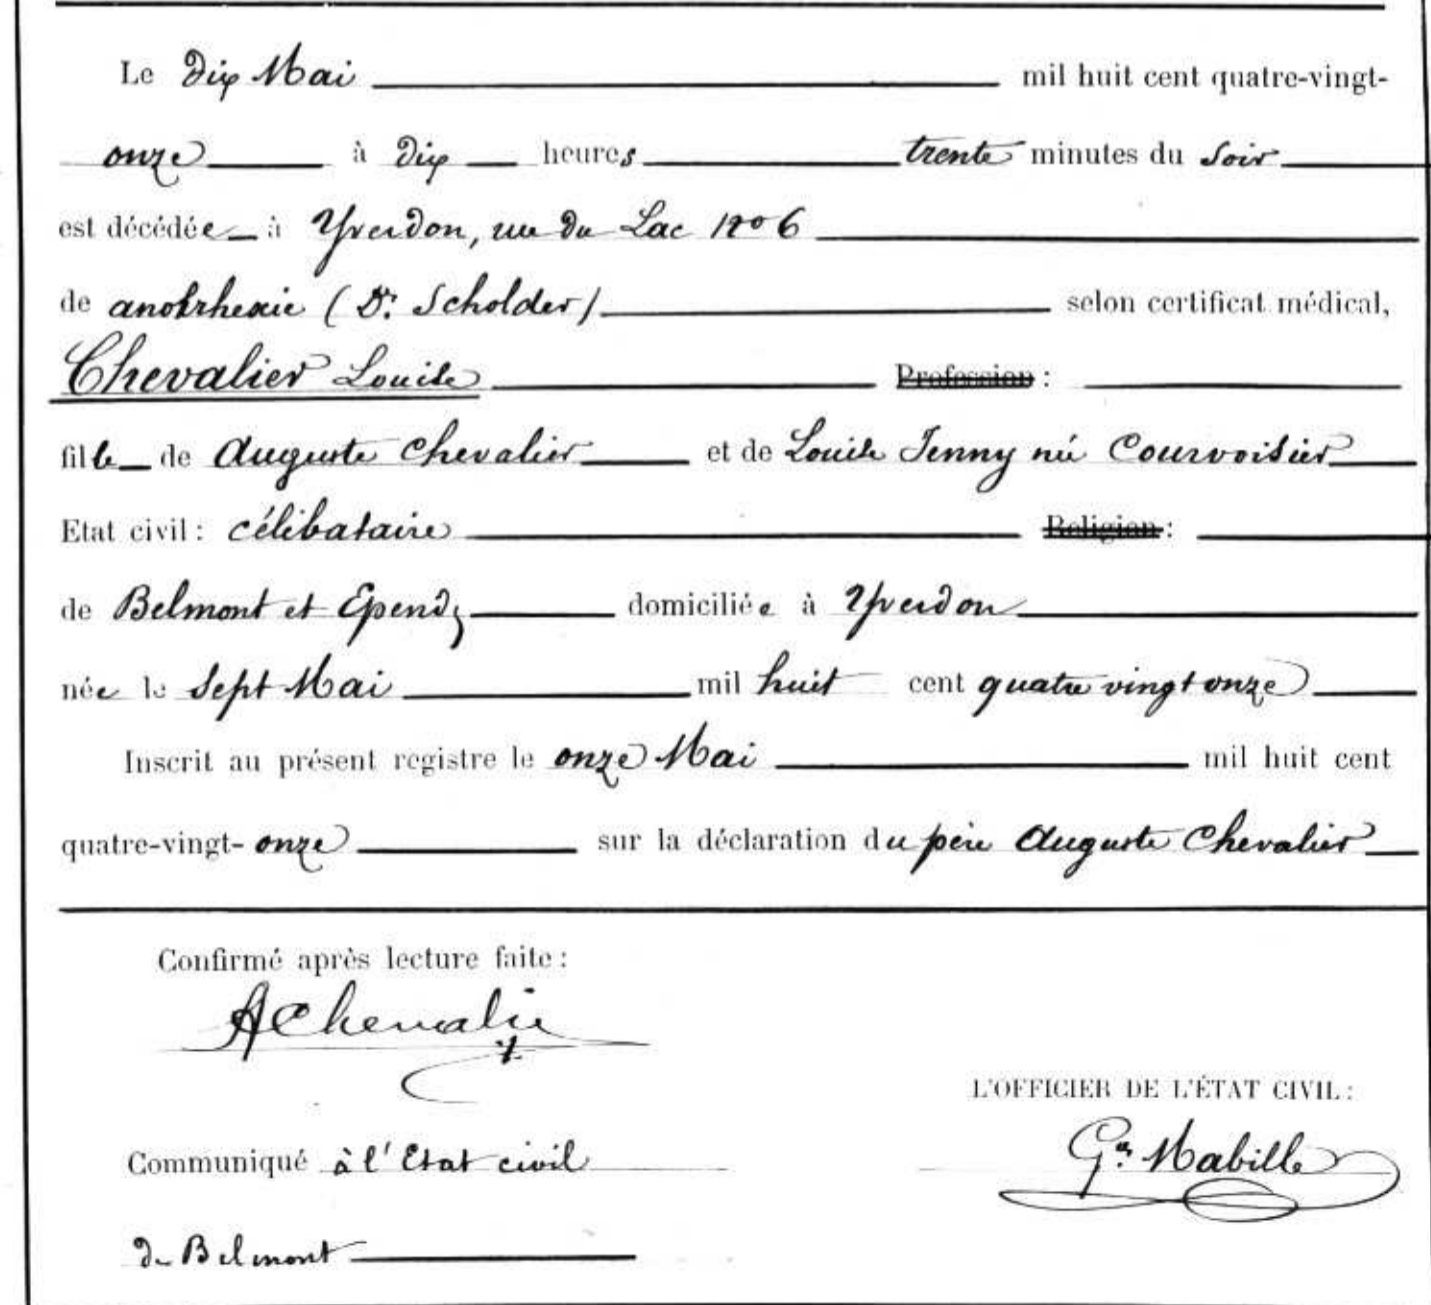 Le dix Mai mil huit cent quatre-vingt-
onze à dix heures trente minutes du soir
est décédée à Yverdon, rue du Lac No 6
de (Dr. Scholder) selon certificat médical,
Chevalier Louise Profession :
fille de Auguste Chevalier et de Louise Jenny née Courvoisier
Etat civil : célibataire Religion :
de Belmont et Epend domiciliée à Yverdon
née le sept Mai mil huit cent quatre vingt onze
Inscrit au présent registre le onze Mai mil huit cent
quatre-vingt- onze sur la déclaration du père Auguste Chevalier
Confirmé après lecture faite :
AChevalier
L'OFFICIER DE L'ÉTAT CIVIL :
Communiqué à l'Etat civil
Mabille
de Belmont